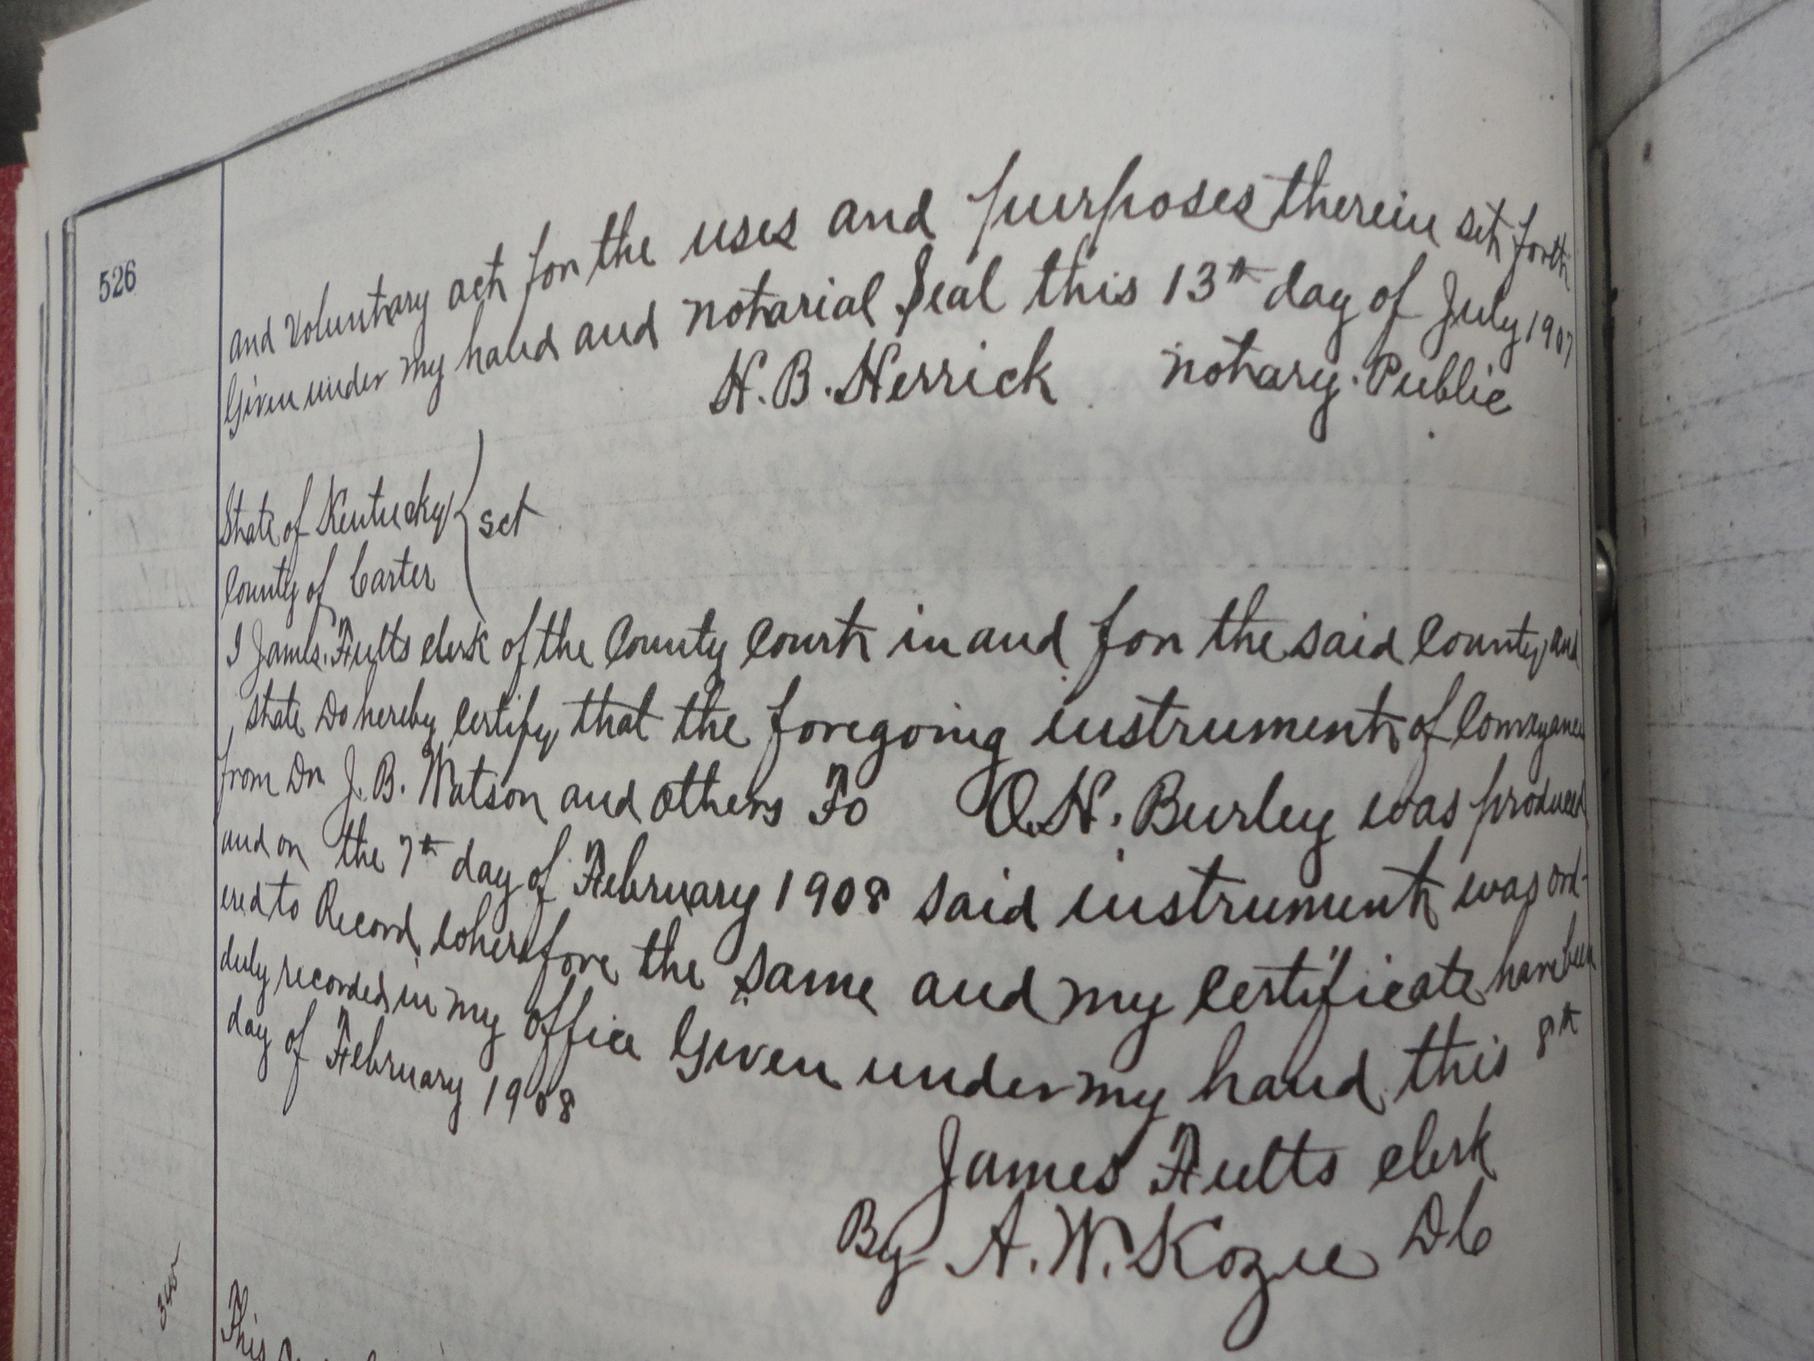 526
and voluntary act for the uses and purposes therein set forth
Given under my hand and notarial Seal this 13th day of July 1907
H. B. Herrick notary. Public
State of Kentucky
sct
County of Carter
I James Fults clerk of the County Court in and for the said County and
state Do hereby certify, that the foregoing instrument of Conveyance
from Dr J. B. Watson and others To O. H. Burley was produced
and on the 7th day of February 1908 said instrument was ord-
ered to Record, wherefore the same and my certificate have been
duly recorded in my office Given under my hand, this 8th
day of February 1908
James Fults clerk
By A. W. Kozee DC
This